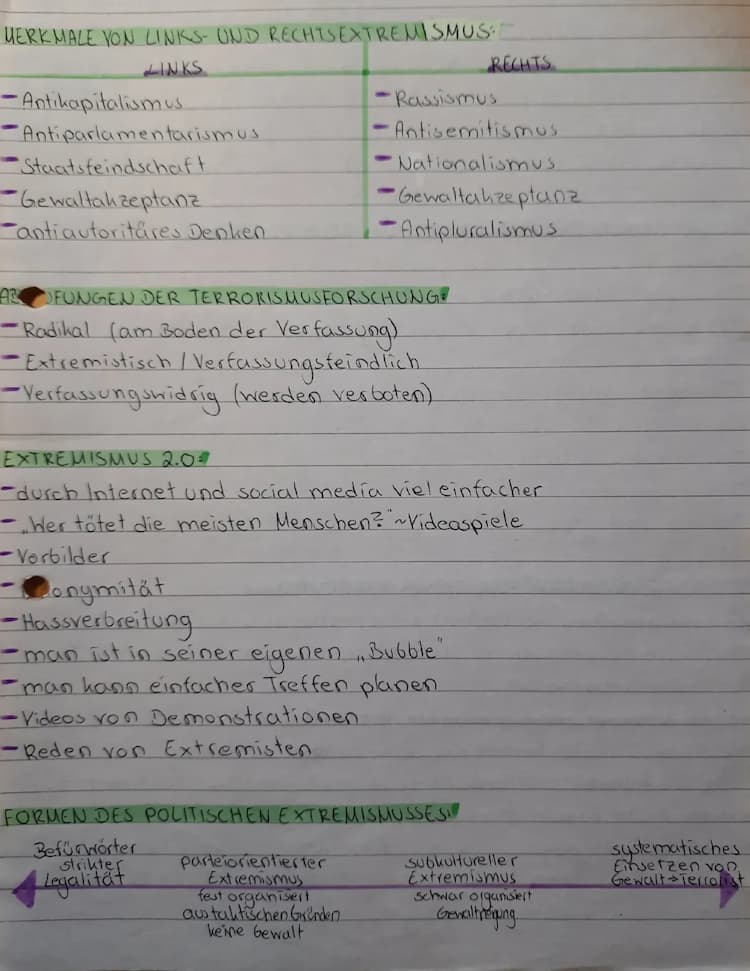 MERKMALE VON LINKS- UND RECHTSEXTREMISMUS:
LINKS
RECHTS
- Antikapitalismus
- Rassismus
- Antiparlamentarismus
- Antisemitismus
- Staatsfeindschaft
- Nationalismus
- Gewaltakzeptanz
- Gewaltakzeptanz
- antiautoritäres Denken
- Antipluralismus
DER TERRORISMUSFORSCHUNG:
- Radikal (am Boden der Verfassung)
- Extremistisch / Verfassungsfeindlich
- Verfassungswidrig (werden verboten)
EXTREMISMUS 2.0:
- durch Internet und social media viel einfacher
- „Wer tötet die meisten Menschen?" ~ Videospiele
- Vorbilder
- onymität
- Hassverbreitung
- man ist in seiner eigenen „Bubble"
- man kann einfacher Treffen planen
- Videos von Demonstrationen
- Reden von Extremisten
FORMEN DES POLITISCHEN EXTREMISMUSSES:
Befürworter
strikter
Legalität
parteiorientierter
Extremismus
fest organisiert
aus taktischen Gründen
keine Gewalt
subkultureller
Extremismus
schwar organisiert
Gewaltneigung
systematisches
Einsetzen von
Gewalt → Terrorist